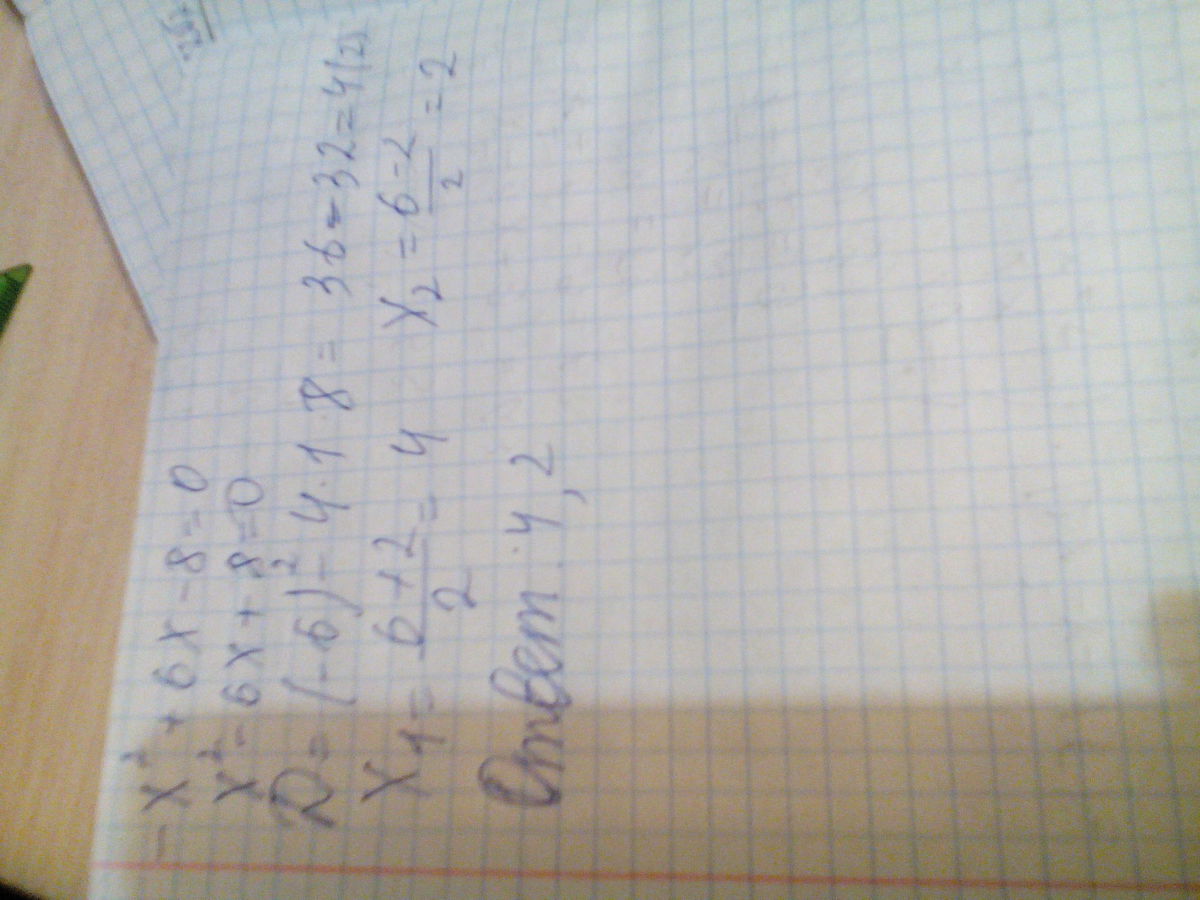 -x² + 6x - 8 = 0
x² - 6x + 8 = 0
D = (-6)² - 4 · 1 · 8 = 36 - 32 = 4 (2)
x₁ = (6 + 2)/2 = 4    x₂ = (6 - 2)/2 = 2
Ответ: 4, 2